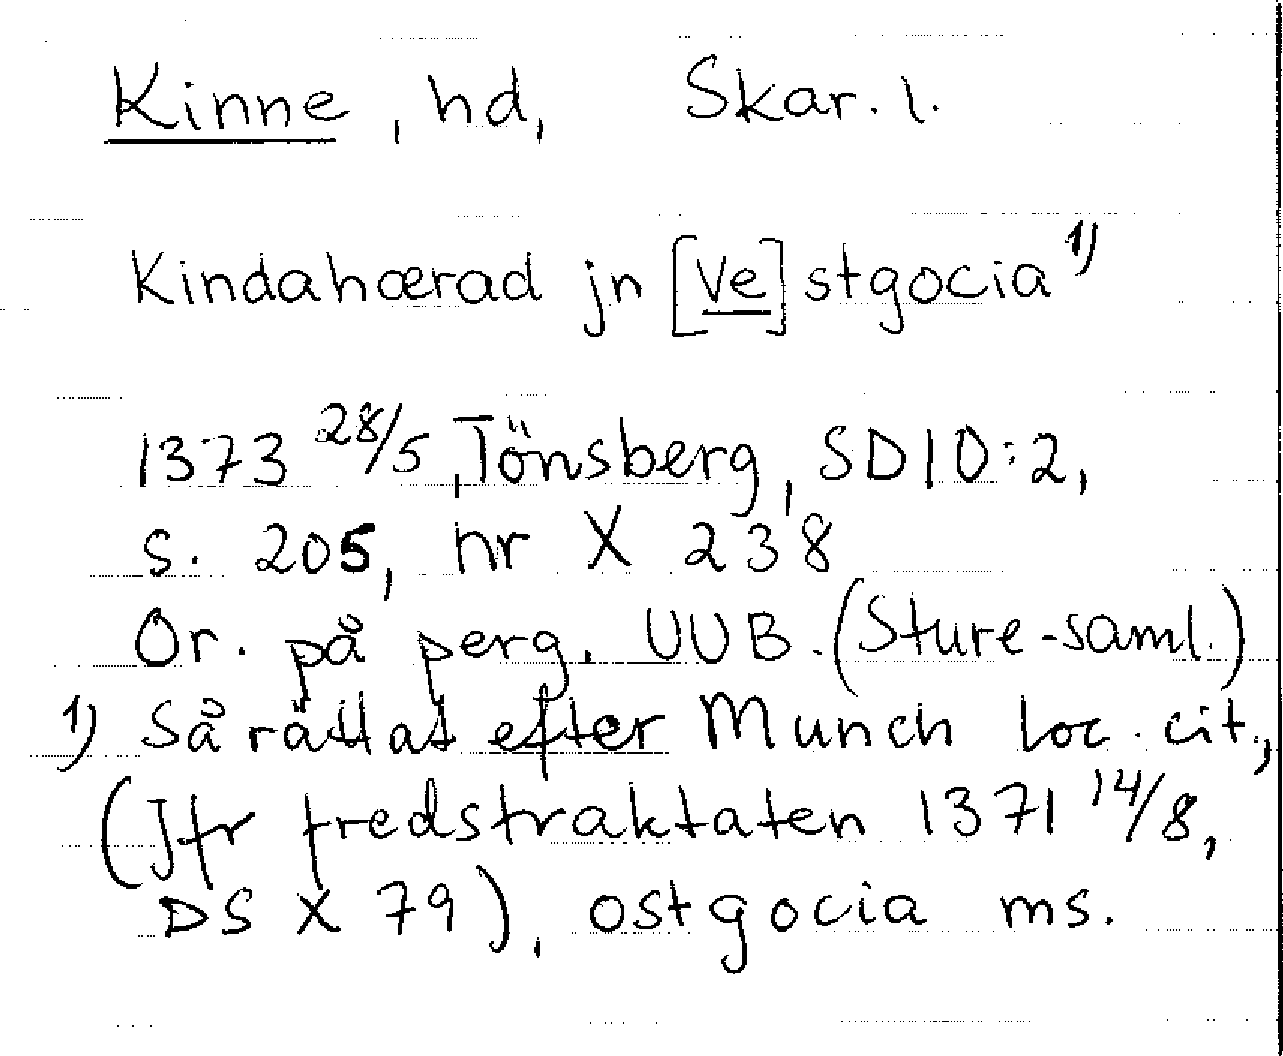 Kinne, hd, Skar. l.
Kindahærad jn [Ve]stgocia 1)
1373 28/5, Tönsberg, SD10:2,
s. 205, nr X 238
Or. på perg. UUB. (Sture-saml.)
1) Så rättat efter Munch loc. cit.,
(Jfr fredstraktaten 1371 14/8,
DS X 79), ostgocia ms.